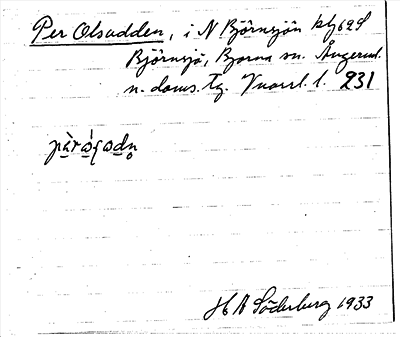 Per Olsudden, i N Björnsjön kbl 62S
Björnsjö, Bjorna sn. Ångerml.
n. doms. Tg. Vuoxl. l. 231
H A Söderberg 1933